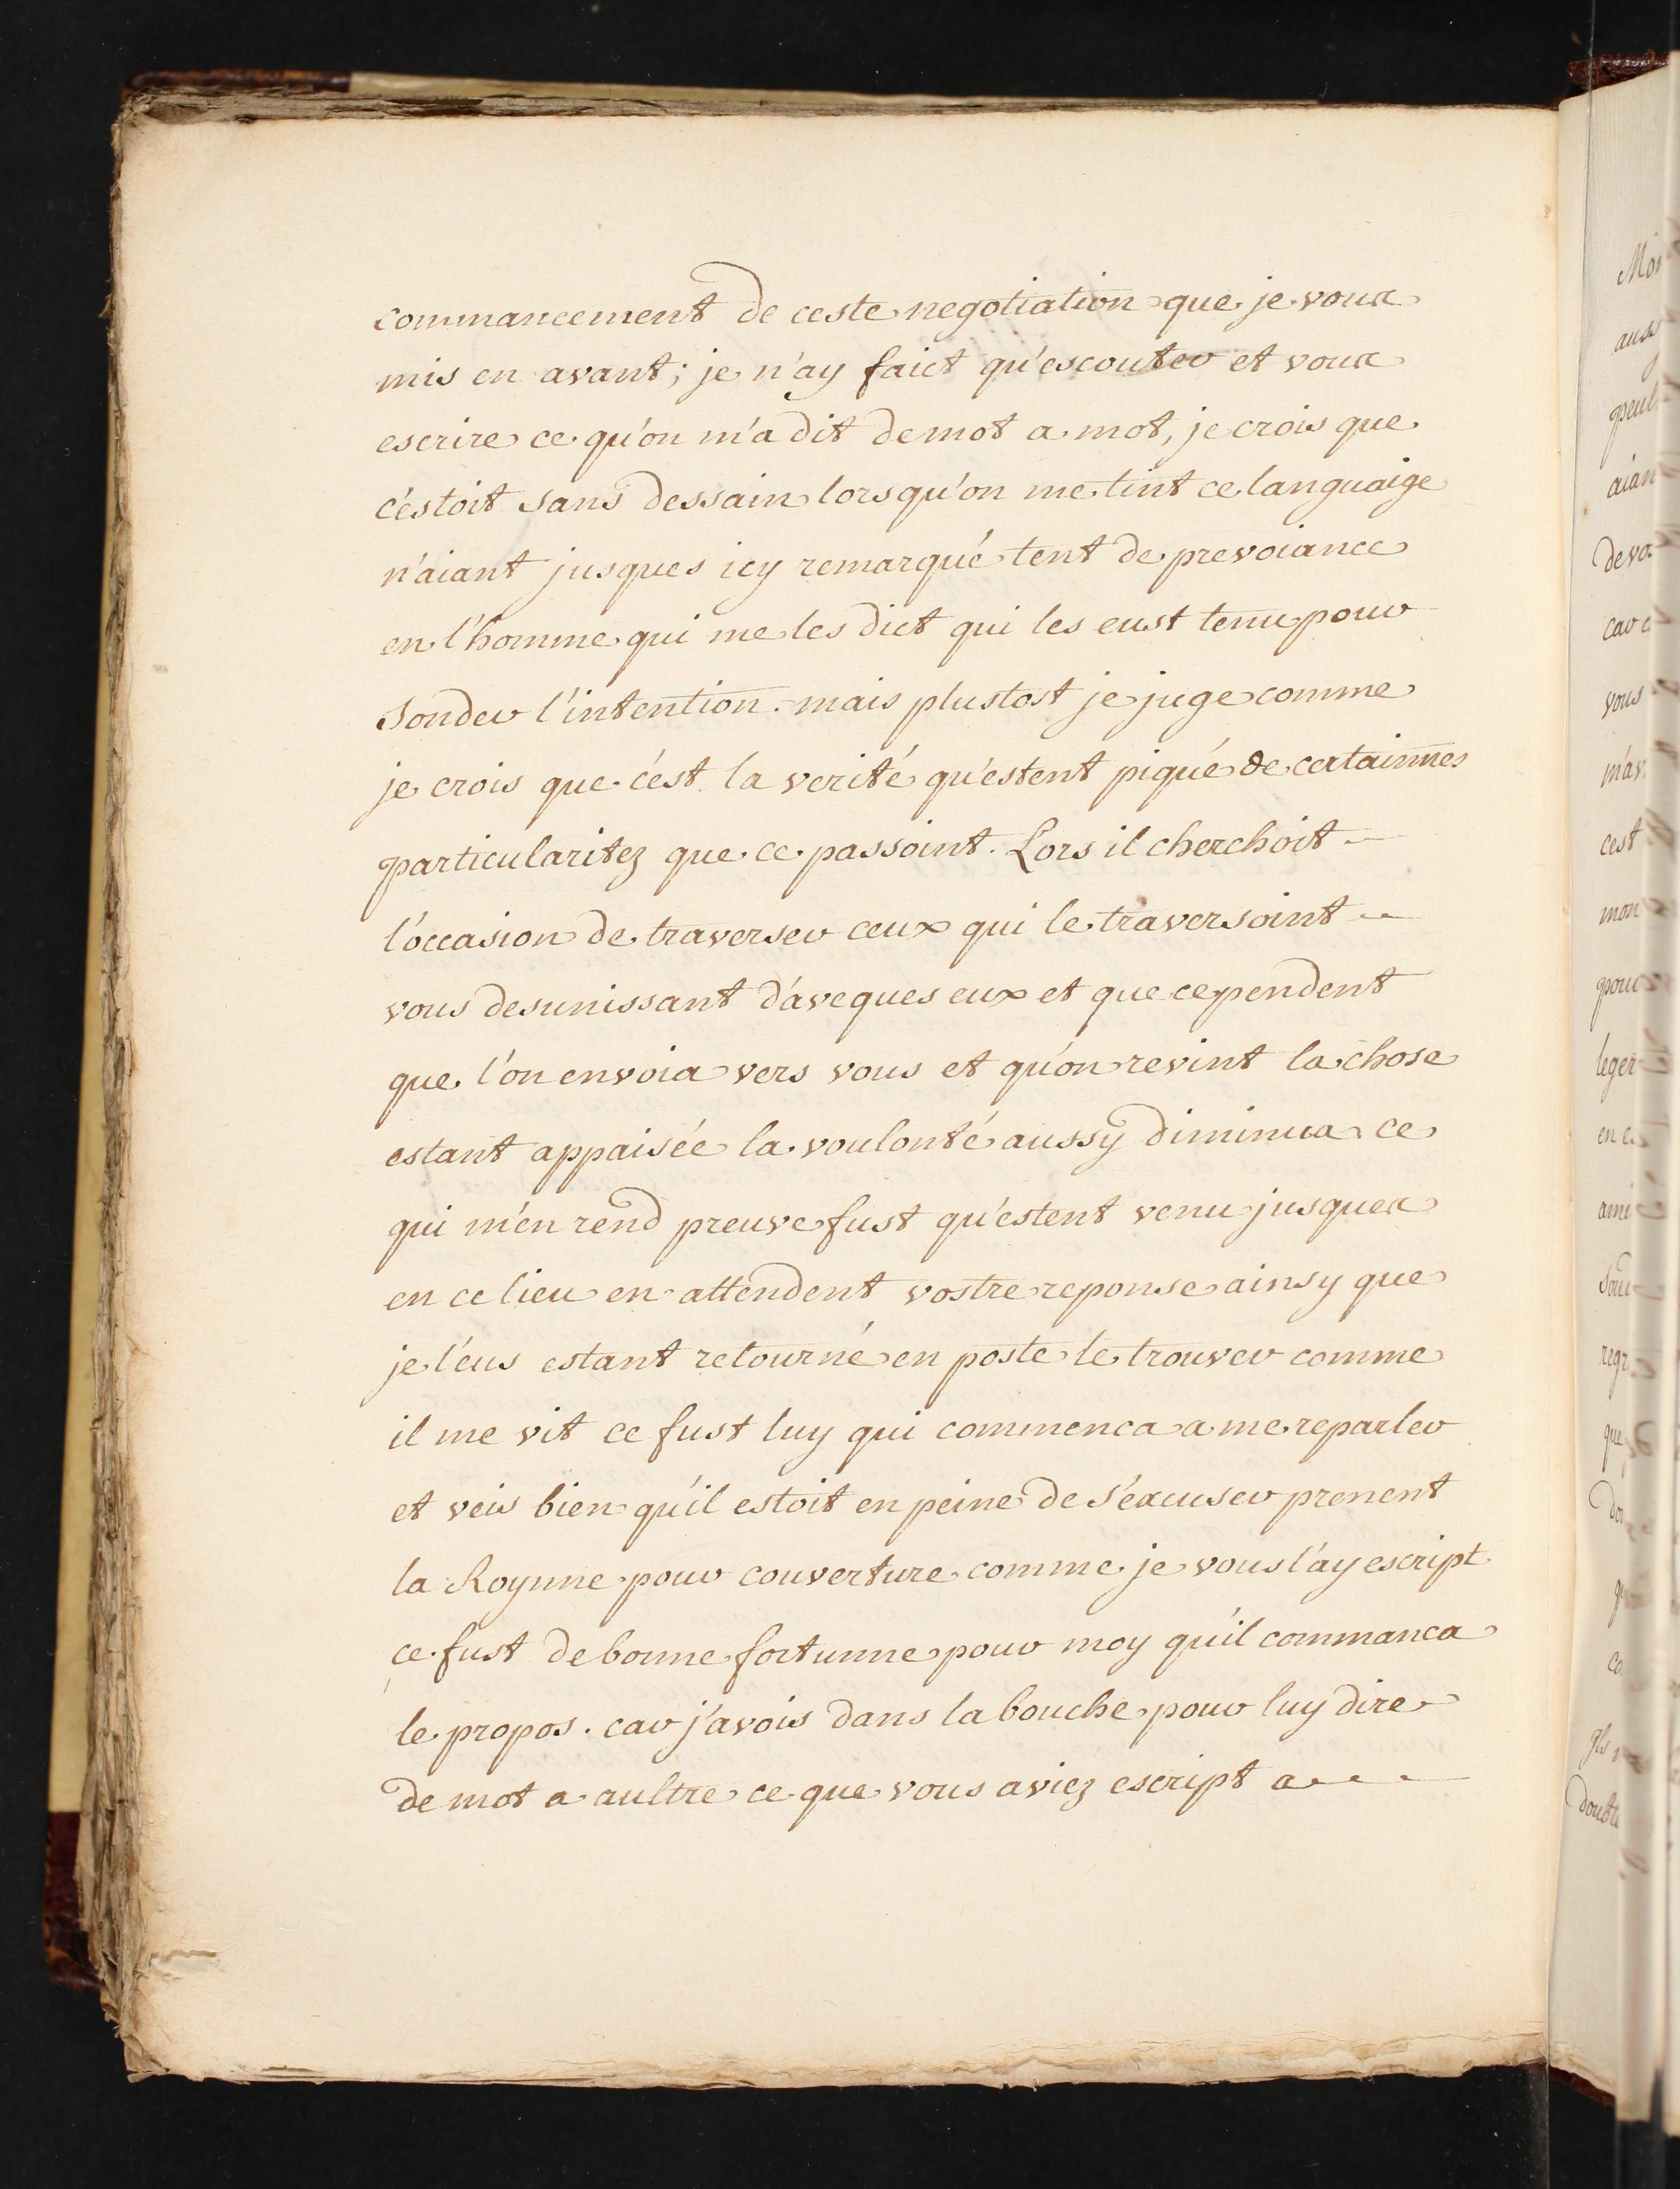 commancement de ceste negotiation que je vous
mis en avant; je n'ay faict qu'escouter et vous
escrire ce qu'on m'a dit de mot a mot, je crois que
c'estoit sans dessain lorsqu'on me tint ce languaige
n'aiant jusques icy remarqué tent de prevoiance
en l'homme qui me les dict qui les eust tenu pour
sonder l'intention. mais plustost je juge comme
je crois que c'est la verité qu'estent piqué de certainnes
particularitez que ce passoint. Lors il cherchoit
l'occasion de traverser ceux qui le traversoint
vous desunissant d'aveques eux et que cependent
que l'on envoia vers vous et qu'on revint la chose
estant appaisée la voulonté aussy diminua ce
qui m'en rend preuve fust qu'estent venu jusques
en ce lieu en attendent vostre reponse ainsy que
je l'eus estant retourné en poste le trouver comme
il me vit ce fust luy qui commenca a me reparler
et veis bien qu'il estoit en peine de s'excuser prenent
la Roynne pour couverture comme je vous l'ay escript
ce fust de bonne fortunne pour moy qu'il commanca
le propos. car j'avois dans la bouche pour luy dire
de mot a aultre ce que vous aviez escript a